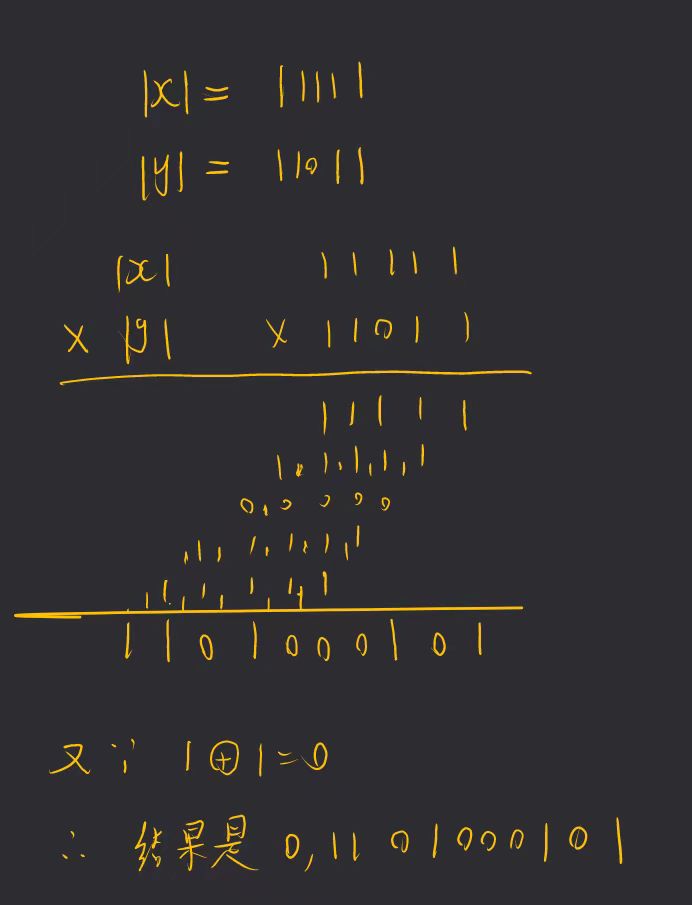 |x| = 11111
|y| = 11011
|x| 1 1 1 1 1
× |y| × 1 1 0 1 1
1 1 1 1 1
1 1 1 1 1
0 0 0 0 0
1 1 1 1 1
1 1 1 1 1
1 1 0 1 0 0 0 1 0 1
又∵ 1⊕1=0
∴ 结果是 0,1101000101